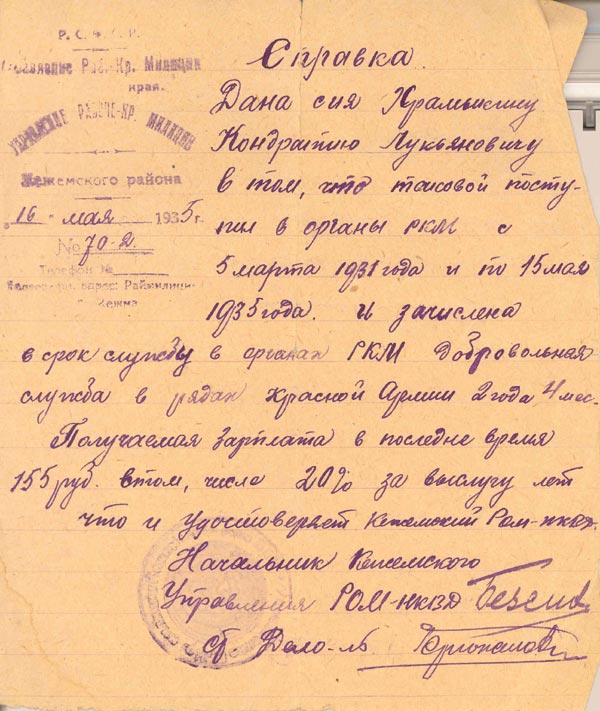 Р. С. Ф. С. Р.
Управление Раб.-Кр. Милиции
края.
УПРАВЛЕНИЕ РАБОЧЕ-КР. МИЛИЦИИ
Кежемского района
„16" мая 1935 г.
№ 70-2.
Телефон №
адрес: Раймилиции
Кежма
Справка
Дана сия Храмыкину
Кондратию Лукьяновичу
в том, что таковой посту-
пил в органы РКМ с
5 марта 1931 года и по 15 мая
1935 года. и зачислена
в срок службу в органах РКМ Добровольная
служба в рядах Красной Армии 2 года 4 мес.
Получаемая зарплата в последне время
155 руб. в том, числе 20% за выслугу лет
что и удостоверяет Кежемский Ром-нквд.
Начальник Кежемского
Управления РОМ-НКВД
Дело-ль